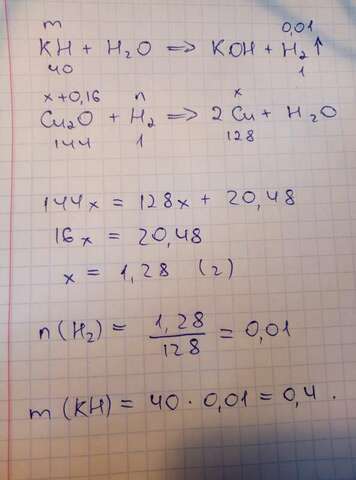 m 0,01
KH + H₂O ⟹ KOH + H₂↑
40 1
x+0,16 n x
Cu₂O + H₂ ⟹ 2 Cu + H₂O
144 1 128
144x = 128x + 20,48
16x = 20,48
x = 1,28 (г)
n(H₂) = 1,28/128 = 0,01
m (KH) = 40 · 0,01 = 0,4.